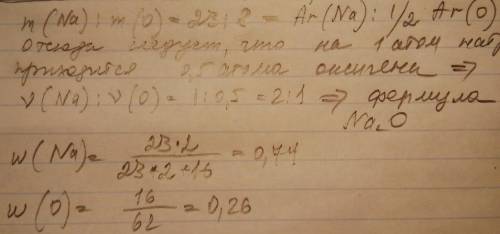 m(Na) : m(O) = 23 : 8 = Ar(Na) : 1/2 Ar(O)
отсюда следует, что на 1 атом
приходится 0,5 атома оксигена ⇒
ν(Na) : ν(O) = 1 : 0,5 = 2 : 1 ⇒ формула
Na₂O
w(Na) = 23·2 / 23·2+16 = 0,74
w(O) = 16 / 62 = 0,26